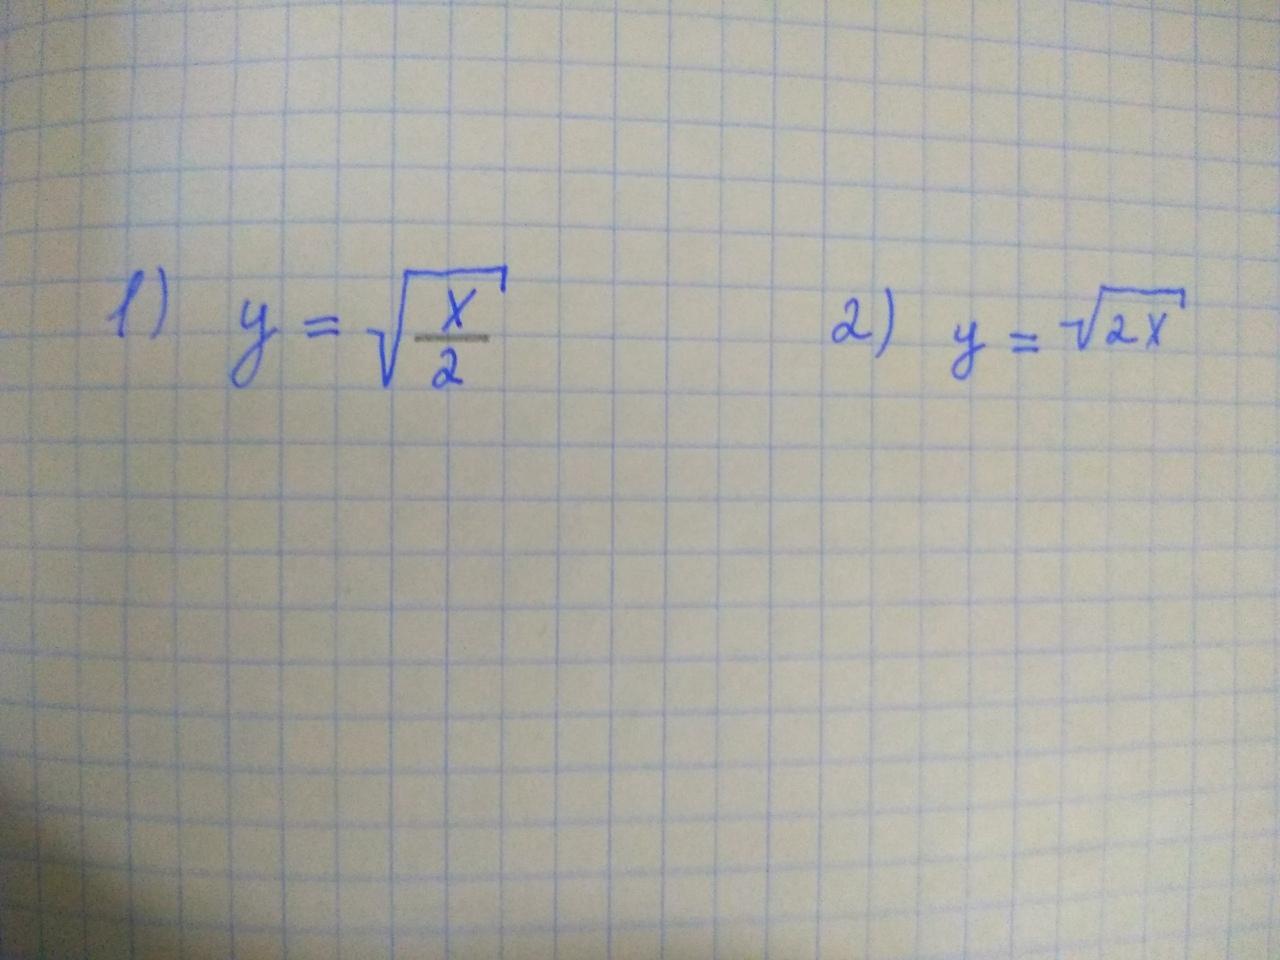 1) y = √(x/2) 2) y = √(2x)